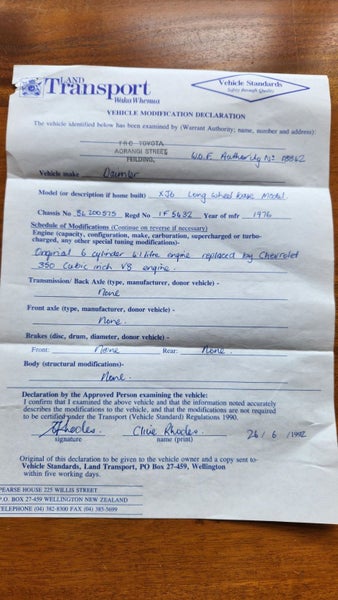 LAND
Transport
Waka Whenua
Vehicle Standards
Safety through Quality
VEHICLE MODIFICATION DECLARATION
The vehicle identified below has been examined by (Warrant Authority; name, number and address):
TRC TOYOTA
AORANGI STREET
FEILDING.
W.O.F. Authority No
Vehicle make Daimler
Model (or description if home built) XJ6 Long Wheel base Model.
Chassis No Regd No IF5432 Year of mfr 1976
Schedule of Modifications (Continue on reverse if necessary)
Engine (capacity, configuration, make, carburation, supercharged or turbo-
charged, any other special tuning modifications)-
Original 6 cylinder 4.2 litre engine replaced by Chevrolet
350 Cubic inch V8 engine.
Transmission/ Back Axle (type, manufacturer, donor vehicle) -
None
Front axle (type, manufacturer, donor vehicle) -
None.
Brakes (disc, drum, diameter, donor vehicle) -
Front: None Rear: None.
Body (structural modifications)-
None.
Declaration by the Approved Person examining the vehicle:
I confirm that I examined the above vehicle and that the information noted accurately
describes the modifications to the vehicle, and that the modifications are not required
to be certified under the Transport (Vehicle Standard) Regulations 1990.
Clive Rhodes. 26 / 6 / 1992
signature name (print)
Original of this declaration to be given to the vehicle owner and a copy sent to-
Vehicle Standards, Land Transport, PO Box 27-459, Wellington
within five working days.
PEARSE HOUSE 225 WILLIS STREET
P.O. BOX 27-459 WELLINGTON NEW ZEALAND
TELEPHONE (04) 382-8300 FAX (04) 385-3699